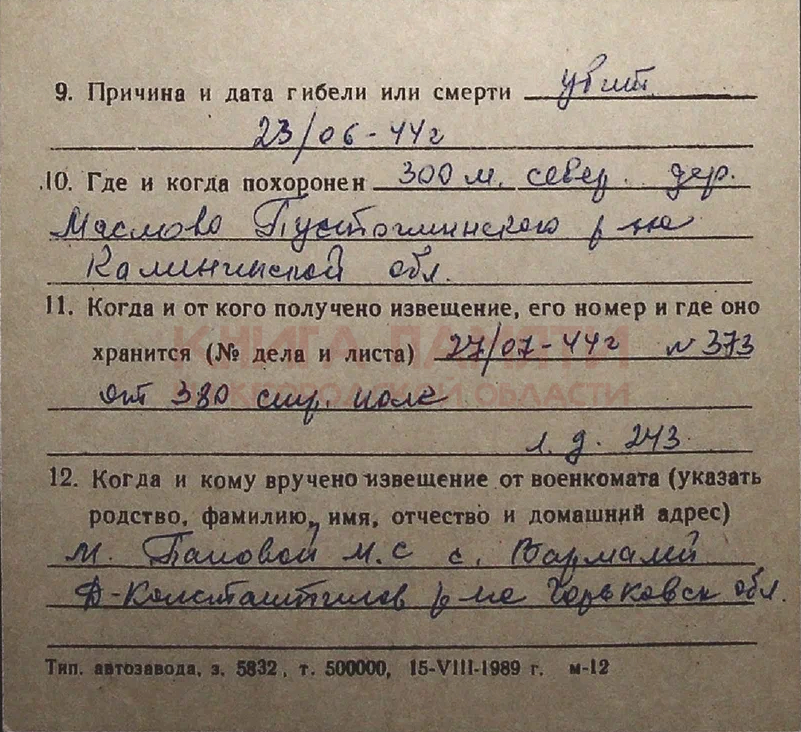 9. Причина и дата гибели или смерти убит
23/06-44г
10. Где и когда похоронен 300 м. север. дер.
Маслово Пустошинского р-на
Калининской обл.
11. Когда и от кого получено извещение, его номер и где оно
КНИГА ПАМЯТИ
хранится (№ дела и листа) 27/07-44г N 373
НИЖЕГОРОДСКОЙ ОБЛАСТИ
от 380 стр. полк
л. д. 243.
12. Когда и кому вручено извещение от военкомата (указать
родство, фамилию, имя, отчество и домашний адрес)
М. Пановой М.С с. Вармалей
Д-Константинов р-на Горьковск обл.
Тип. автозавода, з. 5832, т. 500000, 15-VIII-1989 г. м-12